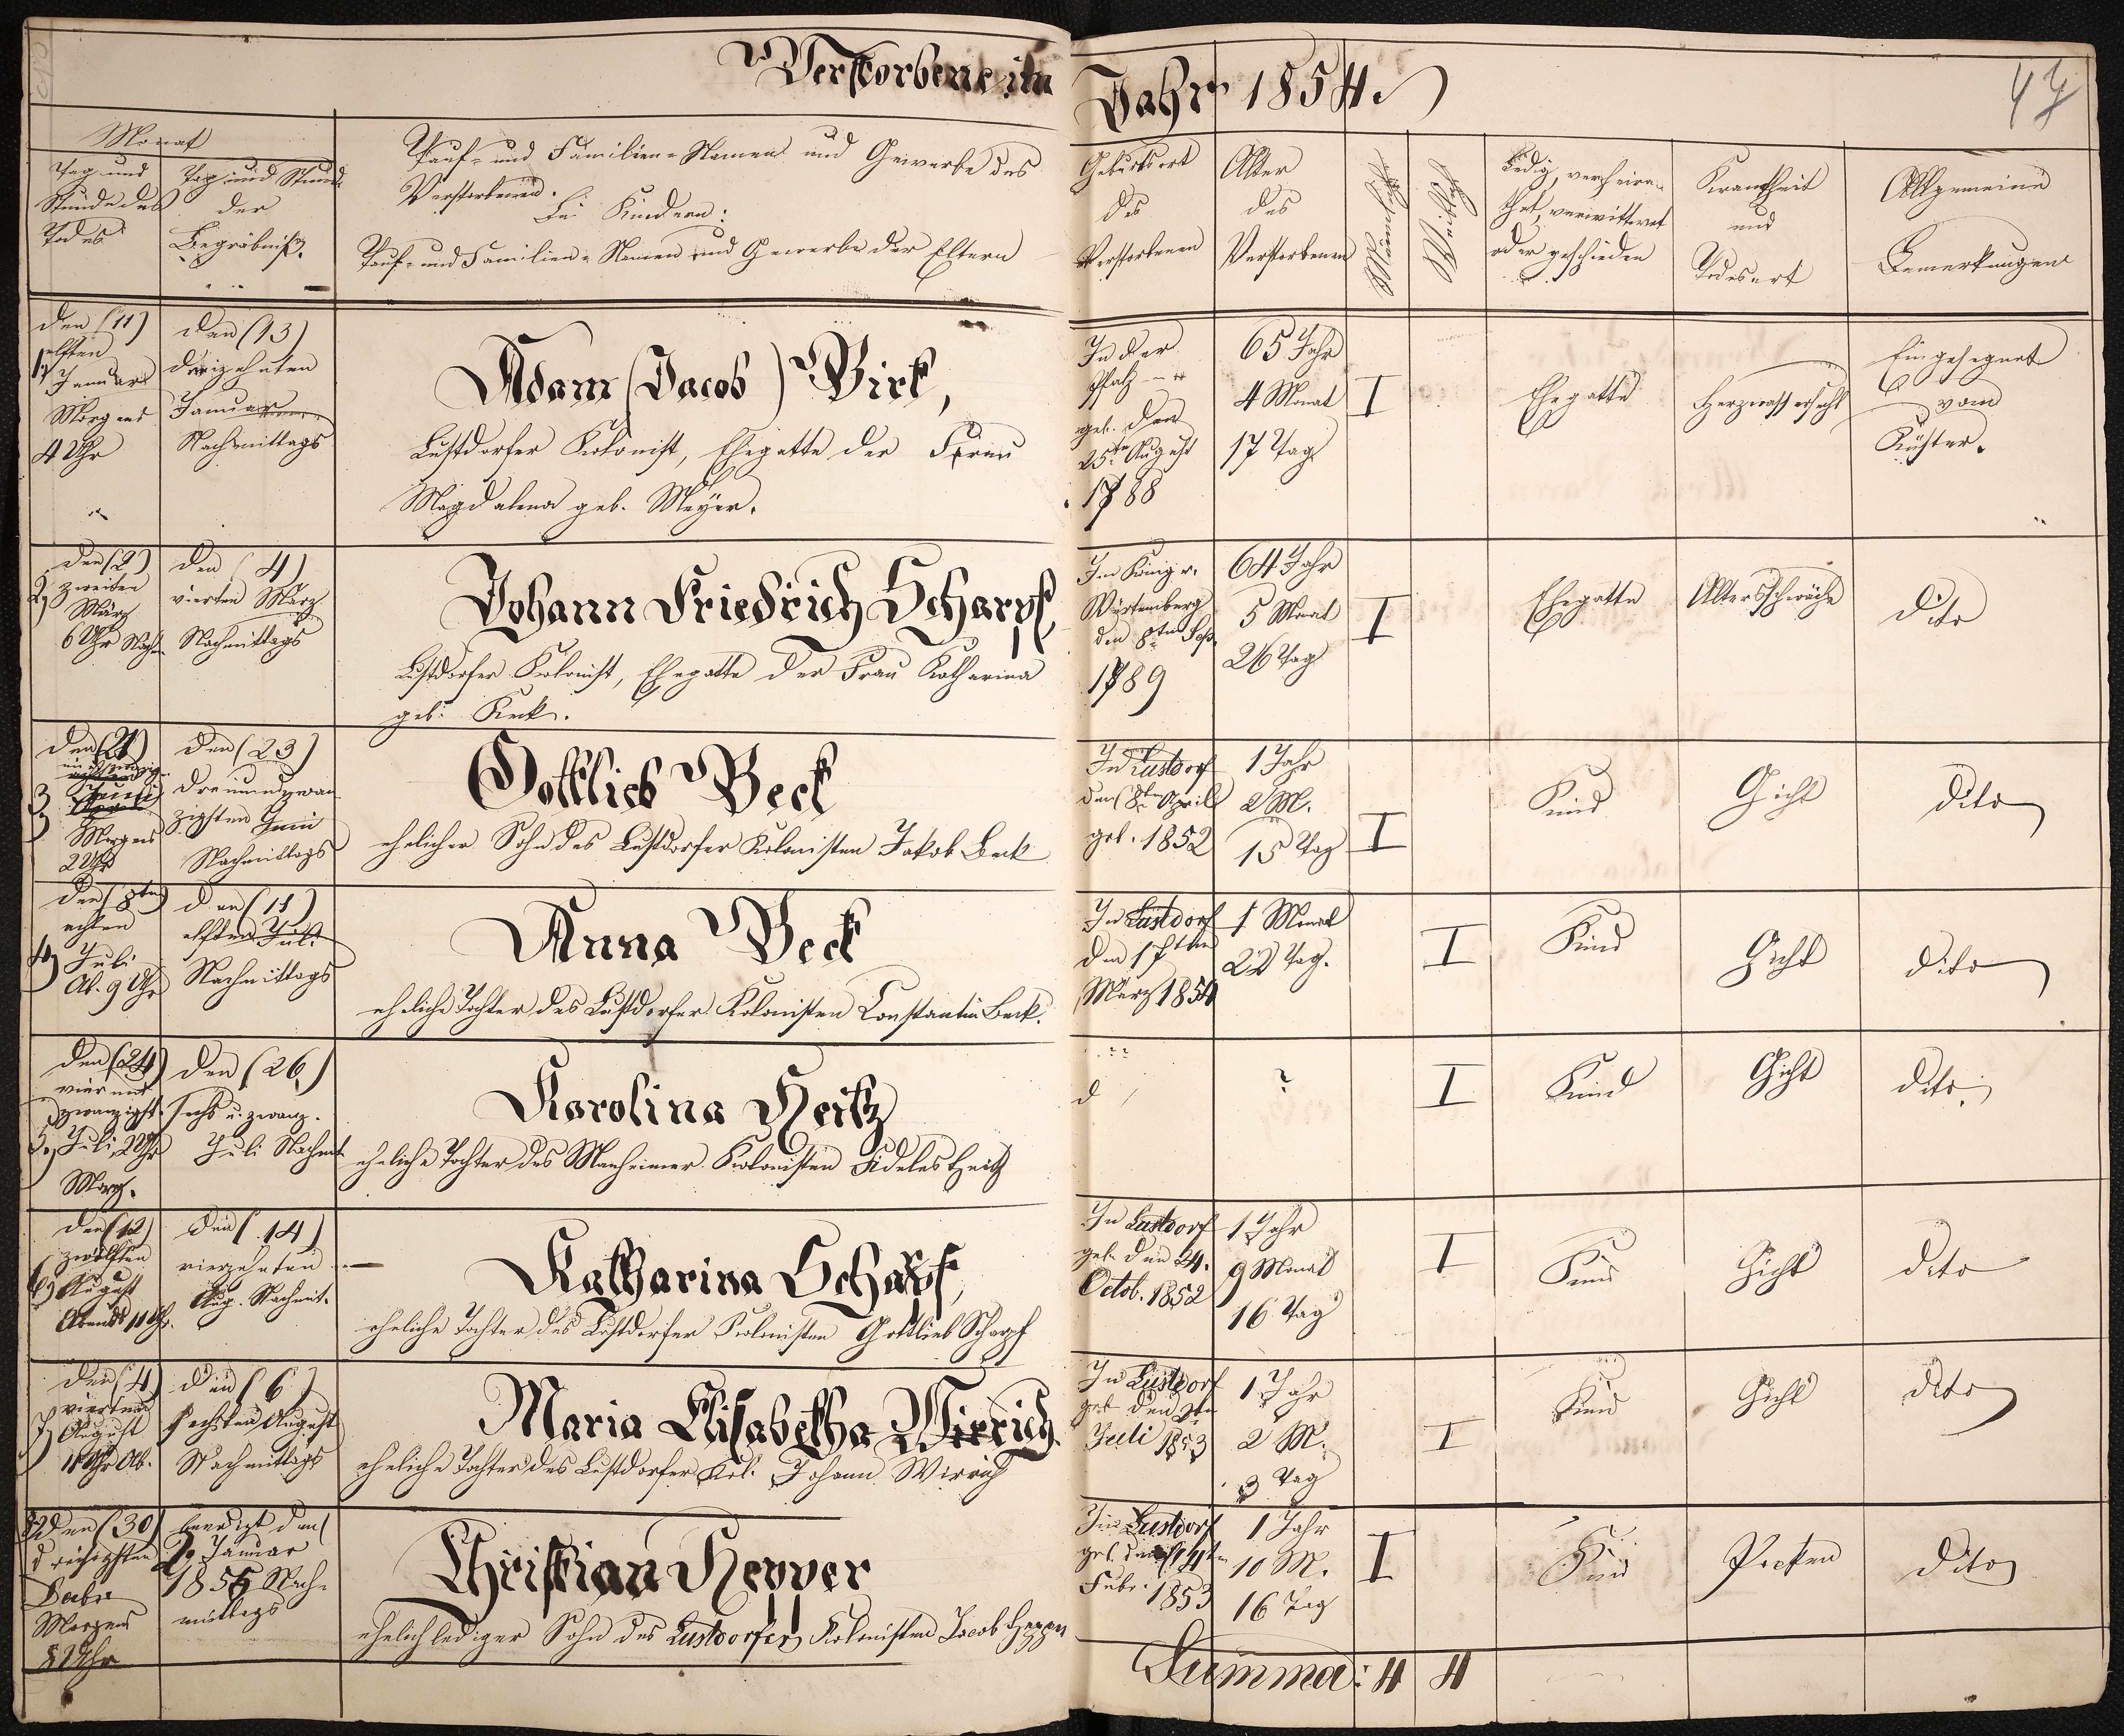 Verstorbene im Jahr 1854.
47
Monat
Tag und
Stunde des
Todes
Tag und Stunde
der
Begräbniß.
Tauf- und Familien-Namen und Gewerbe des
Verstorbenen.
Bei Kindern:
Tauf- und Familien-Namen und Gewerbe der Eltern
Geburtsort
des
Verstorbenen
Alter
des
Verstorbenen
Männlich
Weiblich
Ledig, verheira-
thet, verwittwet
oder geschieden
Krankheit
und
Todesart
Allgemeine
Bemerkungen
den (11)
elften
1, Januar
Morgens
4 Uhr
den (13)
dreizehnten
Januar
Nachmittags
Adam (Jacob) Birk,
Lustdorfer Kolonist, Ehegatte der Frau
Magdalena geb. Meyer.
In der
Pfalz
geb. den
25ten August
1788
65 Jahr
4 Monat
17 Tag
I
Ehegatte
Herzwassersucht
Eingesegnet
vom
Küster.
den (2)
2, zweiten
März
6 Uhr Nachm.
den (4)
vierten März
Nachmittags
Johann Friedrich Scharpf,
Lustdorfer Kolonist, Ehegatte der Frau Katharina
geb. Keck.
Im Königr.
Würtemberg
den 8ten Sep.
1789
64 Jahr
5 Monat
26 Tag
I
Ehegatte
Altersschwäche
dito
den (21)
3, Juni
Morgens
2 Uhr
den (23)
dreiundzwan
zigsten Juni
Nachmittags
Gottlieb Beck
ehelicher Sohn des Lustdorfer Kolonisten Jakob Beck
In Lustdorf
den 8ten April
geb. 1852
1 Jahr
2 M.
15 Tag
I
Kind
Gicht
dito
den (8ten)
achten
4, Juli
Ab. 9 Uhr
den (11)
elften Juli
Nachmittags
Anna Beck
eheliche Tochter des Lustdorfer Kolonisten Constantin Beck.
In Lustdorf
den 17ten
März 1854
1 Monat
22 Tag.
I
Kind
Gicht
dito
den (24)
vier und
zwanzigst.
5, Juli, 2 Uhr
Morg.
den (26)
sechs u. zwanz.
Juli Nachmit
Karolina Heitz
eheliche Tochter des Manheimer Kolonisten Fideles Heitz
d
?
I
Kind
Gicht
dito
den (12)
zwölften
6, August
Abends 11 Uhr.
den (14)
vierzehnten
Aug. Nachmit.
Katharina Scharpf,
eheliche Tochter des Lustdorfer Kolonisten Gottlieb Scharpf
In Lustdorf
geb. den 24.
Octob. 1852
1 Jahr
9 Monat
16 Tag
I
Kind
Gicht
dito
den (4)
vierten
7, August
11 Uhr Ab.
den (6)
sechsten August
Nachmittags
Maria Elisabetha Wirrich.
eheliche Tochter des Lustdorfer Kol. Johann Wirrich
In Lustdorf
geb. den 2ten
Juli 1853
1 Jahr
2 M.
3 Tag
I
Kind
Gicht
dito
8, den (30)
dreißigsten
Decbr
Morgens
8 Uhr
beerdigt den
2. Januar
1855 Nach-
mittags
Christian Hepper
ehelich lediger Sohn des Lustdorfer Kolonisten Jacob Hepper
In Lustdorf
geb. den 14ten
Febr. 1853
1 Jahr
10 M.
16 Tag
I
Kind
Pocken
dito
Summa: 4 4